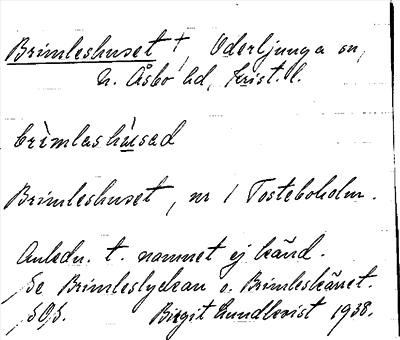 Brimleshuset †, Oderljunga sn,
N. Åsbo hd, Krist. l.
brìmlashùsad
Brimleshuset, nr 1 Tosteboholm.
Anledn. t. namnet ej känd.
Se Brimleslyckan o. Brimleskärret.
Birgit Lundkvist 1938.